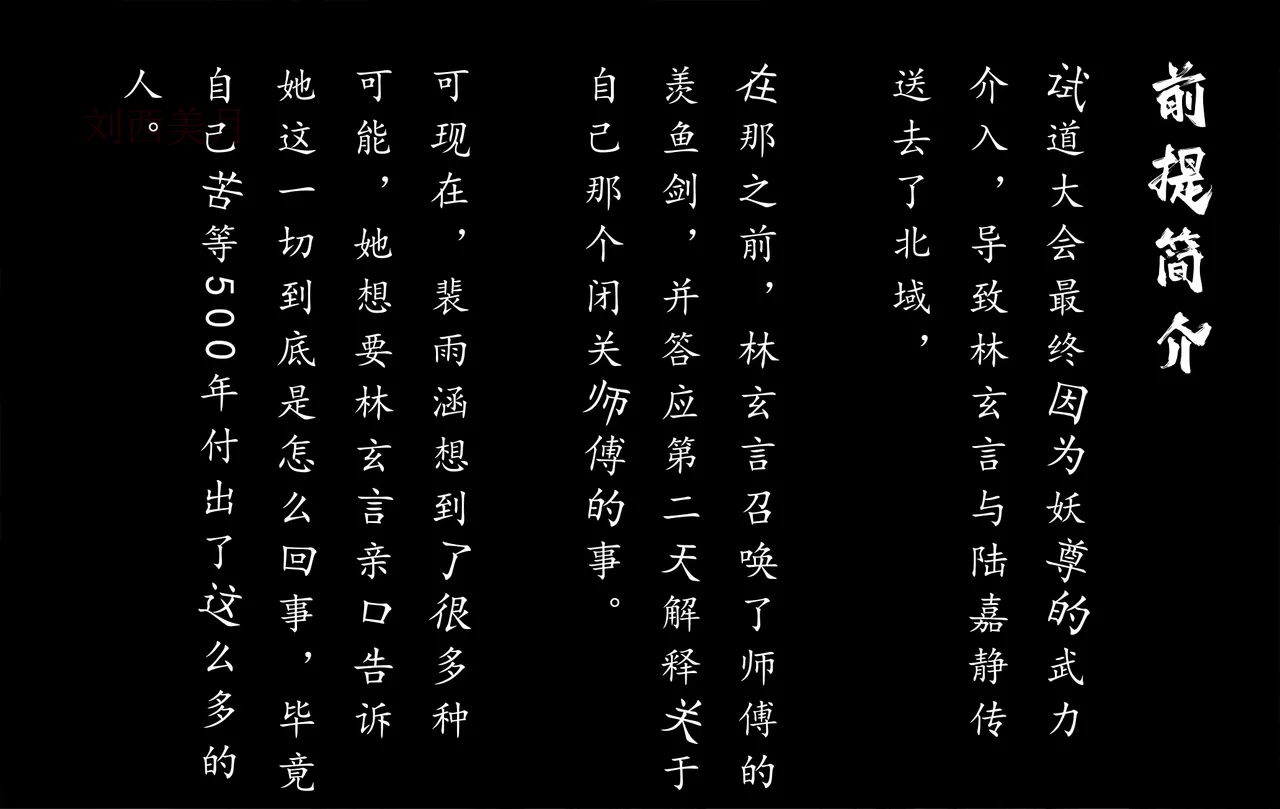 前提简介
试道大会最终因为妖尊的武力
介入，导致林玄言与陆嘉静传
送去了北域，
在那之前，林玄言召唤了师傅的
羡鱼剑，并答应第二天解释关于
自己那个闭关师傅的事。
可现在，裴雨涵想到了很多种
可能，她想要林玄言亲口告诉
她这一切到底是怎么回事，毕竟
自己苦等500年付出了这么多的
人。
刘西美月